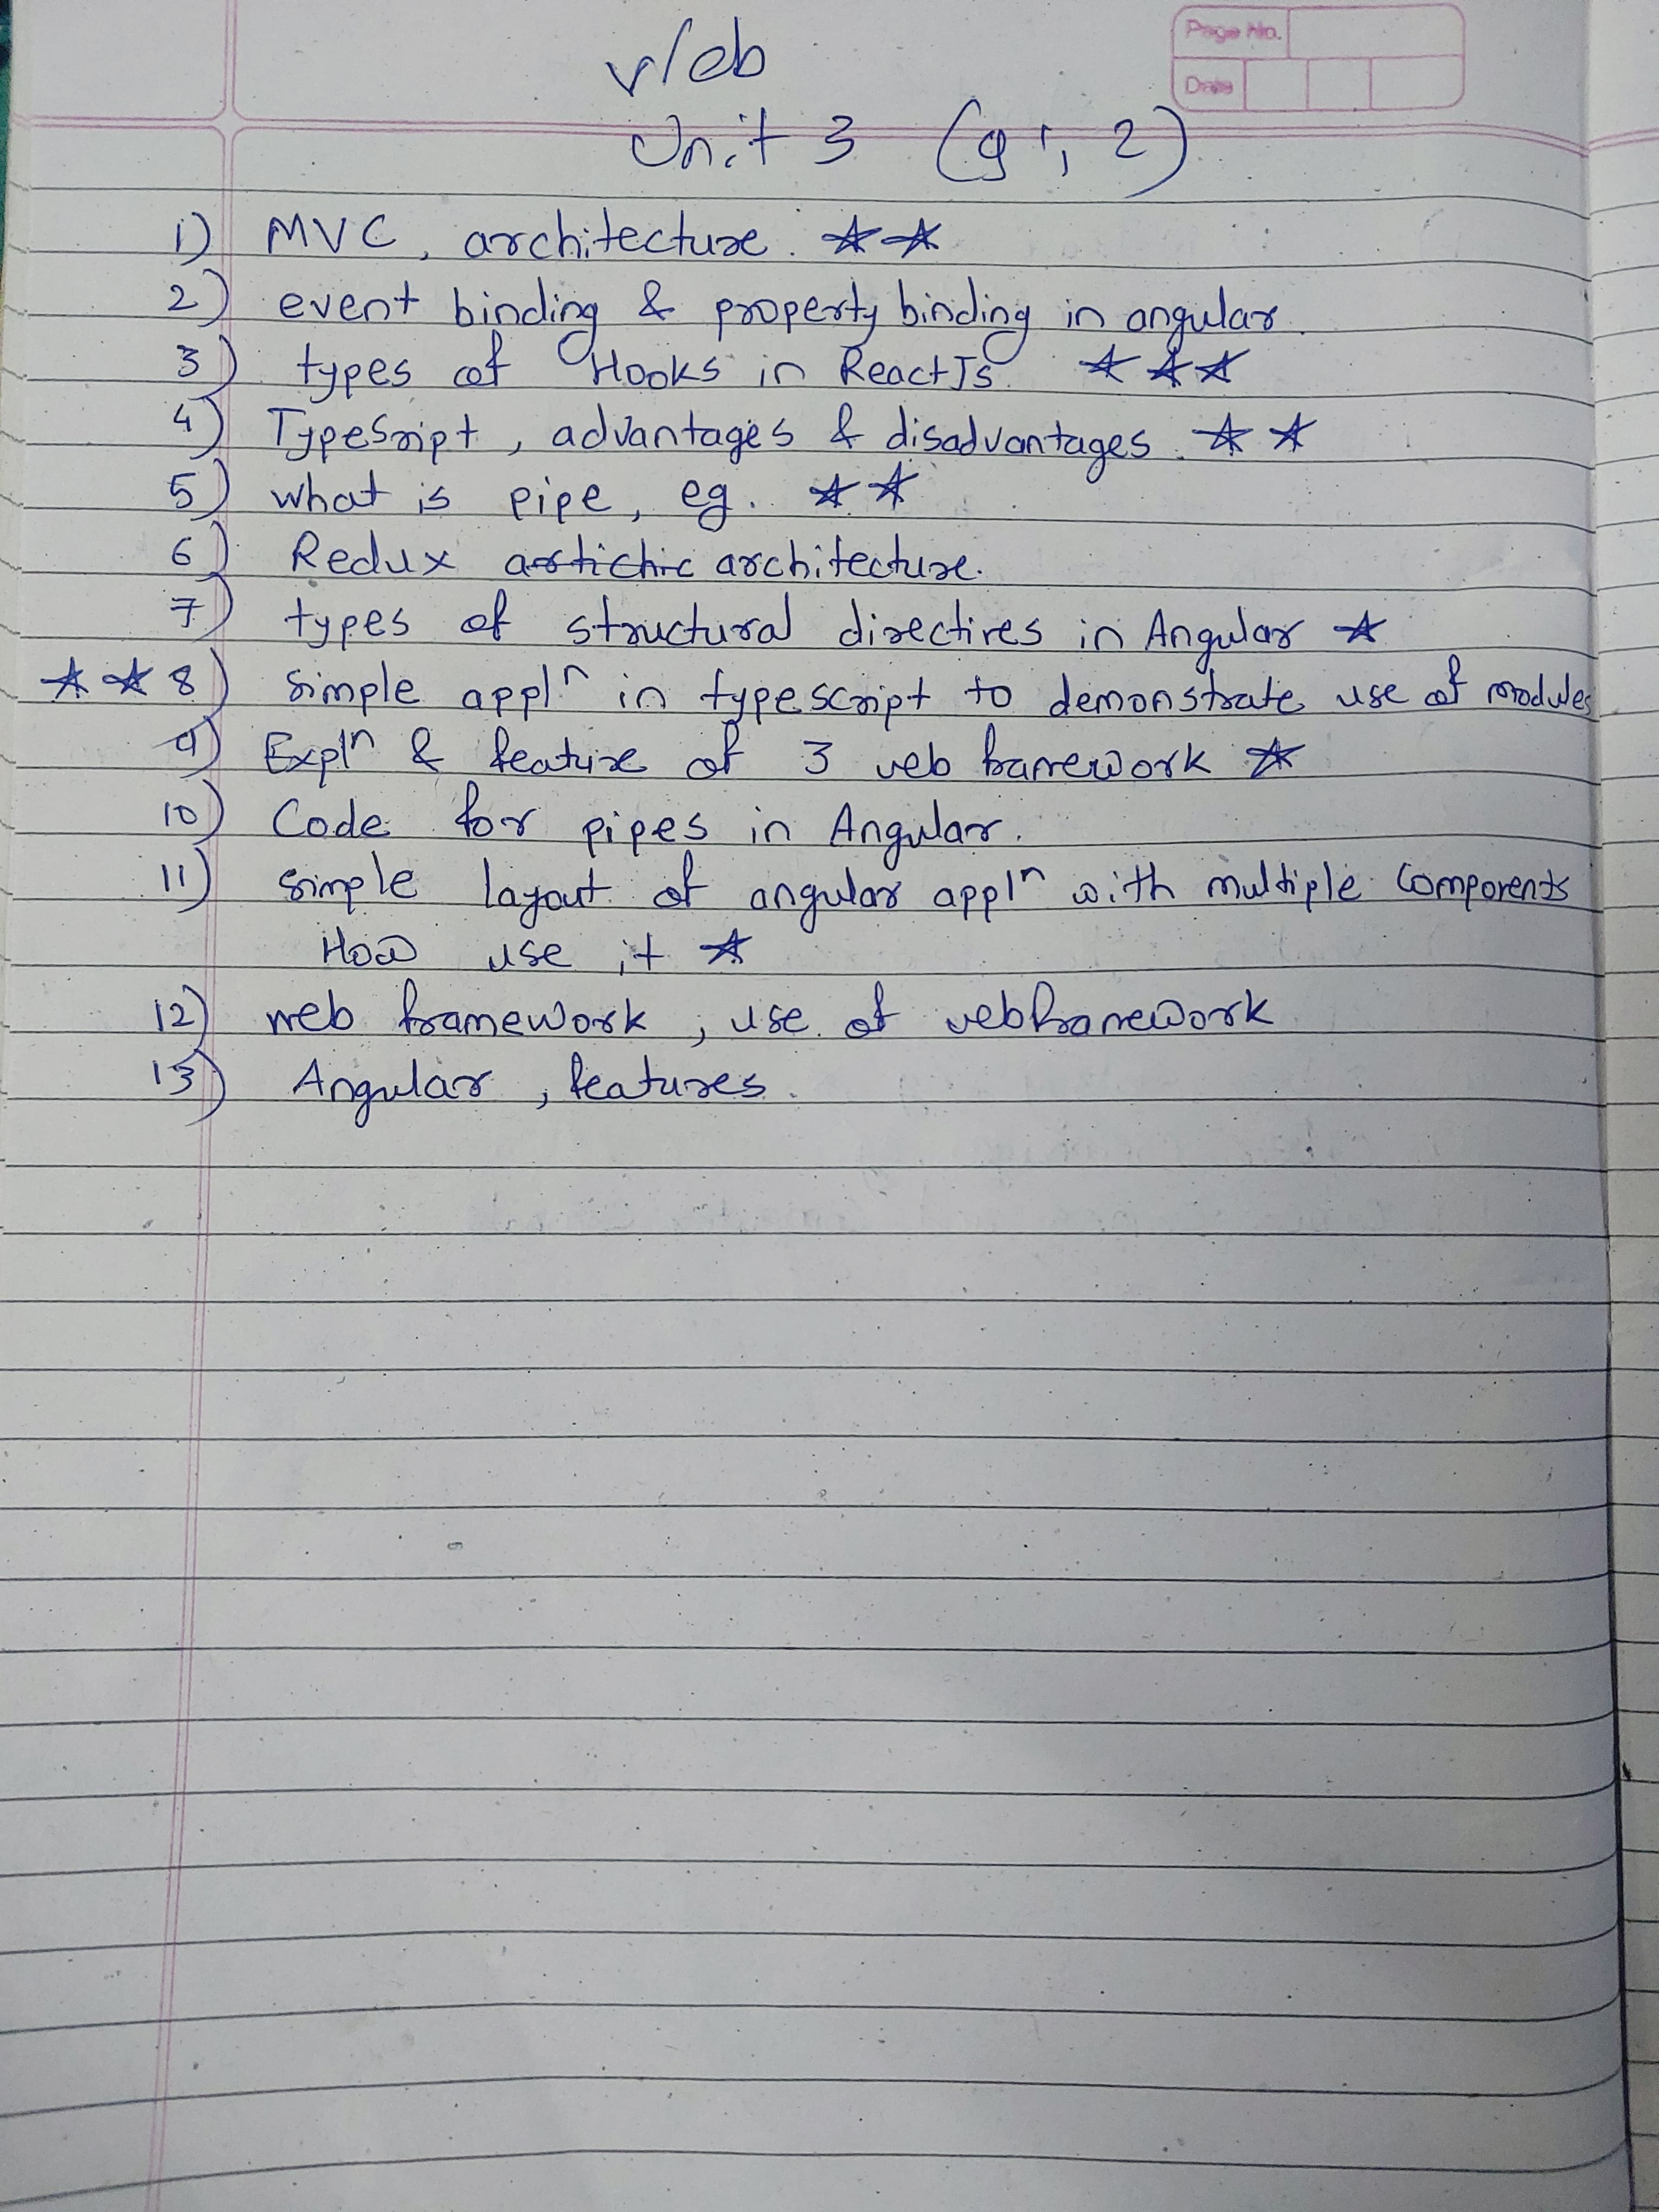 Page No.
Date
Web
Unit 3 (q 1, 2)
1) MVC, architecture. ☆☆
2) event binding & property binding in angular.
3) types of Hooks in ReactJs. ☆☆☆
4) TypeScript, advantages & disadvantages. ☆☆
5) what is pipe, eg. ☆☆
6) Redux architecture.
7) types of structural directives in Angular ☆
☆☆ 8) simple applⁿ in typescript to demonstrate use of modules
9) Explⁿ & feature of 3 web framework ☆
10) Code for pipes in Angular.
11) simple layout of angular applⁿ with multiple components
How use it ☆
12) web framework, use of webframework
13) Angular, features.